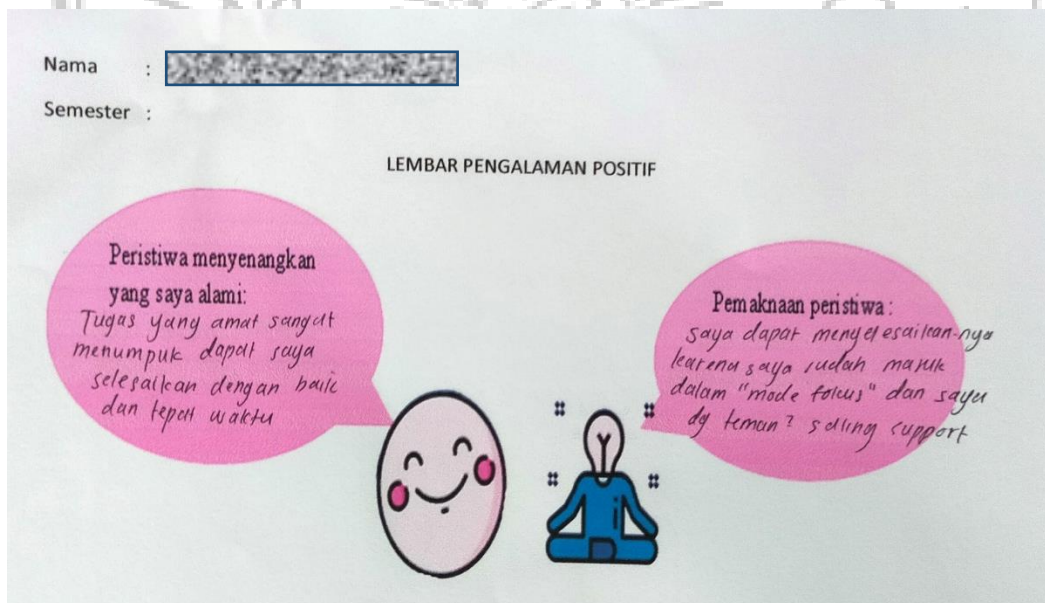 Nama :
Semester :
LEMBAR PENGALAMAN POSITIF
Peristiwa menyenangkan
yang saya alami:
Tugas yang amat sangat
menumpuk dapat saya
selesaikan dengan baik
dan tepat waktu
Pemaknaan peristiwa :
saya dapat menyelesaikan-nya
karena saya sudah masuk
dalam "mode fokus" dan saya
dg teman² saling support